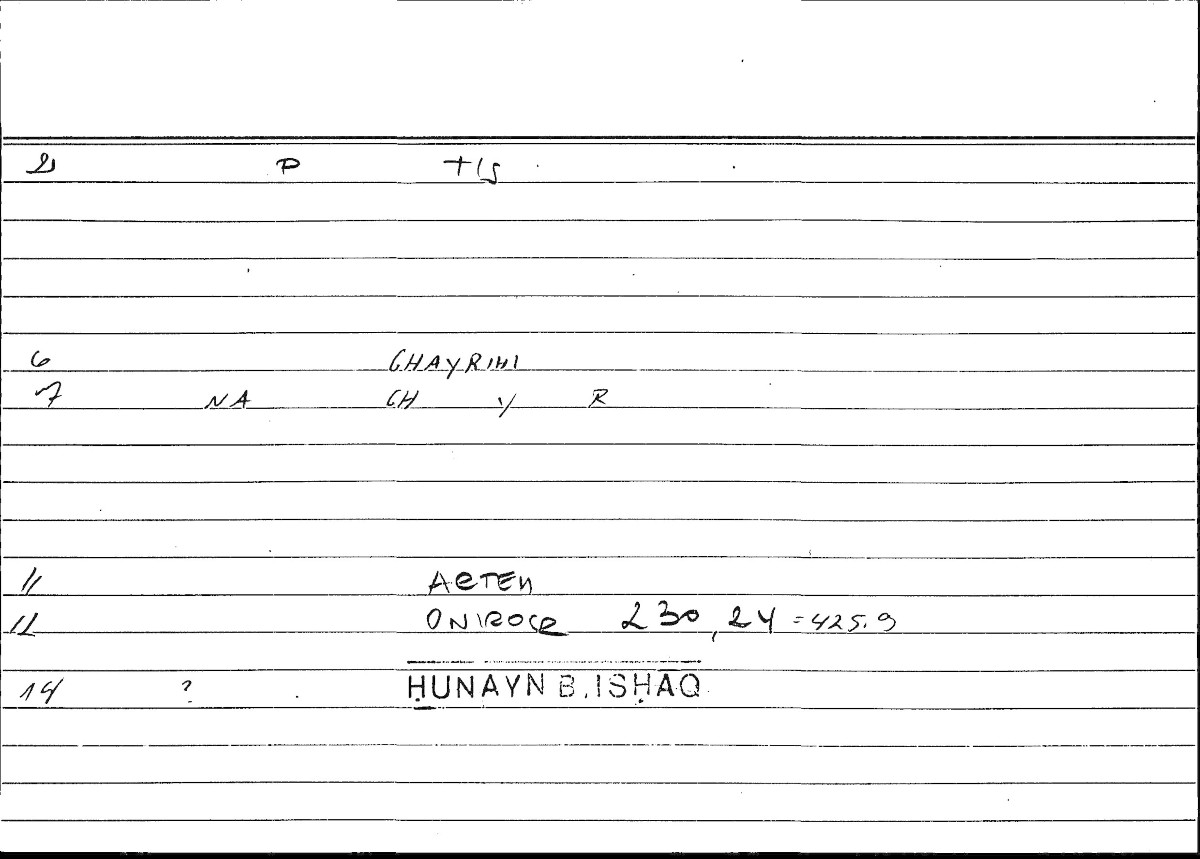 P T/S
6 GHAYRIHI
7 NA GH Y R
11 ARTEM
12 ONIROCR 230,24 = 425.9
14 ? ḤUNAYN B. ISḤĀQ